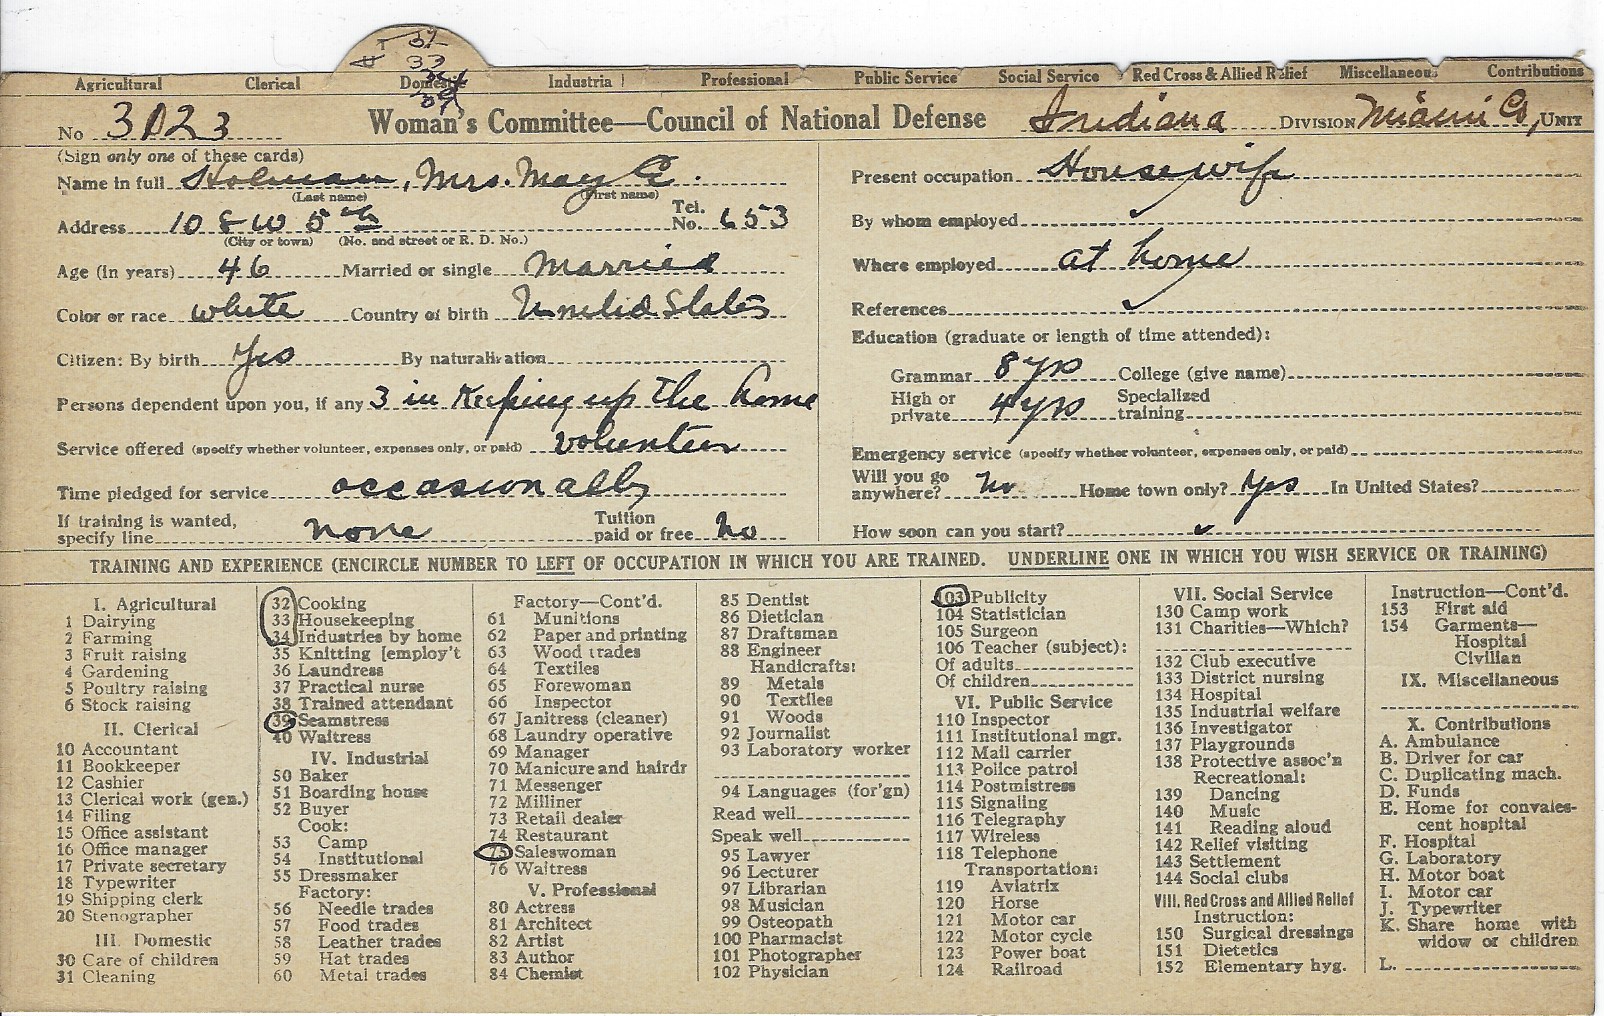 37
33
Agricultural Clerical Domestic Industrial Professional Public Service Social Service Red Cross & Allied Relief Miscellaneous Contributions
No 3023 Woman's Committee—Council of National Defense Indiana DIVISION Miami Co, UNIT
(Sign only one of these cards)
Name in full Holman, Mrs. May E.
(Last name) (First name)
Address 108 W 5th Tel. No. 653
(City or town) (No. and street or R. D. No.)
Age (in years) 46 Married or single Married
Color or race white Country of birth United States
Citizen: By birth Yes By naturalization
Persons dependent upon you, if any 3 in Keeping up the home
Service offered (specify whether volunteer, expenses only, or paid) volunteer
Time pledged for service occasionally
If training is wanted, specify line none Tuition paid or free no
Present occupation Housewife
By whom employed
Where employed at home
References
Education (graduate or length of time attended):
Grammar 8 yrs College (give name)
High or private 4 yrs Specialized training
Emergency service (specify whether volunteer, expenses only, or paid)
Will you go anywhere? No Home town only? Yes In United States?
How soon can you start?
TRAINING AND EXPERIENCE (ENCIRCLE NUMBER TO LEFT OF OCCUPATION IN WHICH YOU ARE TRAINED. UNDERLINE ONE IN WHICH YOU WISH SERVICE OR TRAINING)
I. Agricultural
1 Dairying
2 Farming
3 Fruit raising
4 Gardening
5 Poultry raising
6 Stock raising
II. Clerical
10 Accountant
11 Bookkeeper
12 Cashier
13 Clerical work (gen.)
14 Filing
15 Office assistant
16 Office manager
17 Private secretary
18 Typewriter
19 Shipping clerk
20 Stenographer
III. Domestic
30 Care of children
31 Cleaning
32 Cooking
33 Housekeeping
34 Industries by home
35 Knitting [employ't
36 Laundress
37 Practical nurse
38 Trained attendant
39 Seamstress
40 Waitress
IV. Industrial
50 Baker
51 Boarding house
52 Buyer
Cook:
53 Camp
54 Institutional
55 Dressmaker
Factory:
56 Needle trades
57 Food trades
58 Leather trades
59 Hat trades
60 Metal trades
Factory—Cont'd.
61 Munitions
62 Paper and printing
63 Wood trades
64 Textiles
65 Forewoman
66 Inspector
67 Janitress (cleaner)
68 Laundry operative
69 Manager
70 Manicure and hairdr
71 Messenger
72 Milliner
73 Retail dealer
74 Restaurant
75 Saleswoman
76 Waitress
V. Professional
80 Actress
81 Architect
82 Artist
83 Author
84 Chemist
85 Dentist
86 Dietician
87 Draftsman
88 Engineer
Handicrafts:
89 Metals
90 Textiles
91 Woods
92 Journalist
93 Laboratory worker
94 Languages (for'gn)
Read well
Speak well
95 Lawyer
96 Lecturer
97 Librarian
98 Musician
99 Osteopath
100 Pharmacist
101 Photographer
102 Physician
103 Publicity
104 Statistician
105 Surgeon
106 Teacher (subject):
Of adults
Of children
VI. Public Service
110 Inspector
111 Institutional mgr.
112 Mail carrier
113 Police patrol
114 Postmistress
115 Signaling
116 Telegraphy
117 Wireless
118 Telephone
Transportation:
119 Aviatrix
120 Horse
121 Motor car
122 Motor cycle
123 Power boat
124 Railroad
VII. Social Service
130 Camp work
131 Charities—Which?
132 Club executive
133 District nursing
134 Hospital
135 Industrial welfare
136 Investigator
137 Playgrounds
138 Protective assoc'n
Recreational:
139 Dancing
140 Music
141 Reading aloud
142 Relief visiting
143 Settlement
144 Social clubs
VIII. Red Cross and Allied Relief
Instruction:
150 Surgical dressings
151 Dietetics
152 Elementary hyg.
Instruction—Cont'd.
153 First aid
154 Garments—
Hospital
Civilian
IX. Miscellaneous
X. Contributions
A. Ambulance
B. Driver for car
C. Duplicating mach.
D. Funds
E. Home for convales-
cent hospital
F. Hospital
G. Laboratory
H. Motor boat
I. Motor car
J. Typewriter
K. Share home with
widow or children
L.